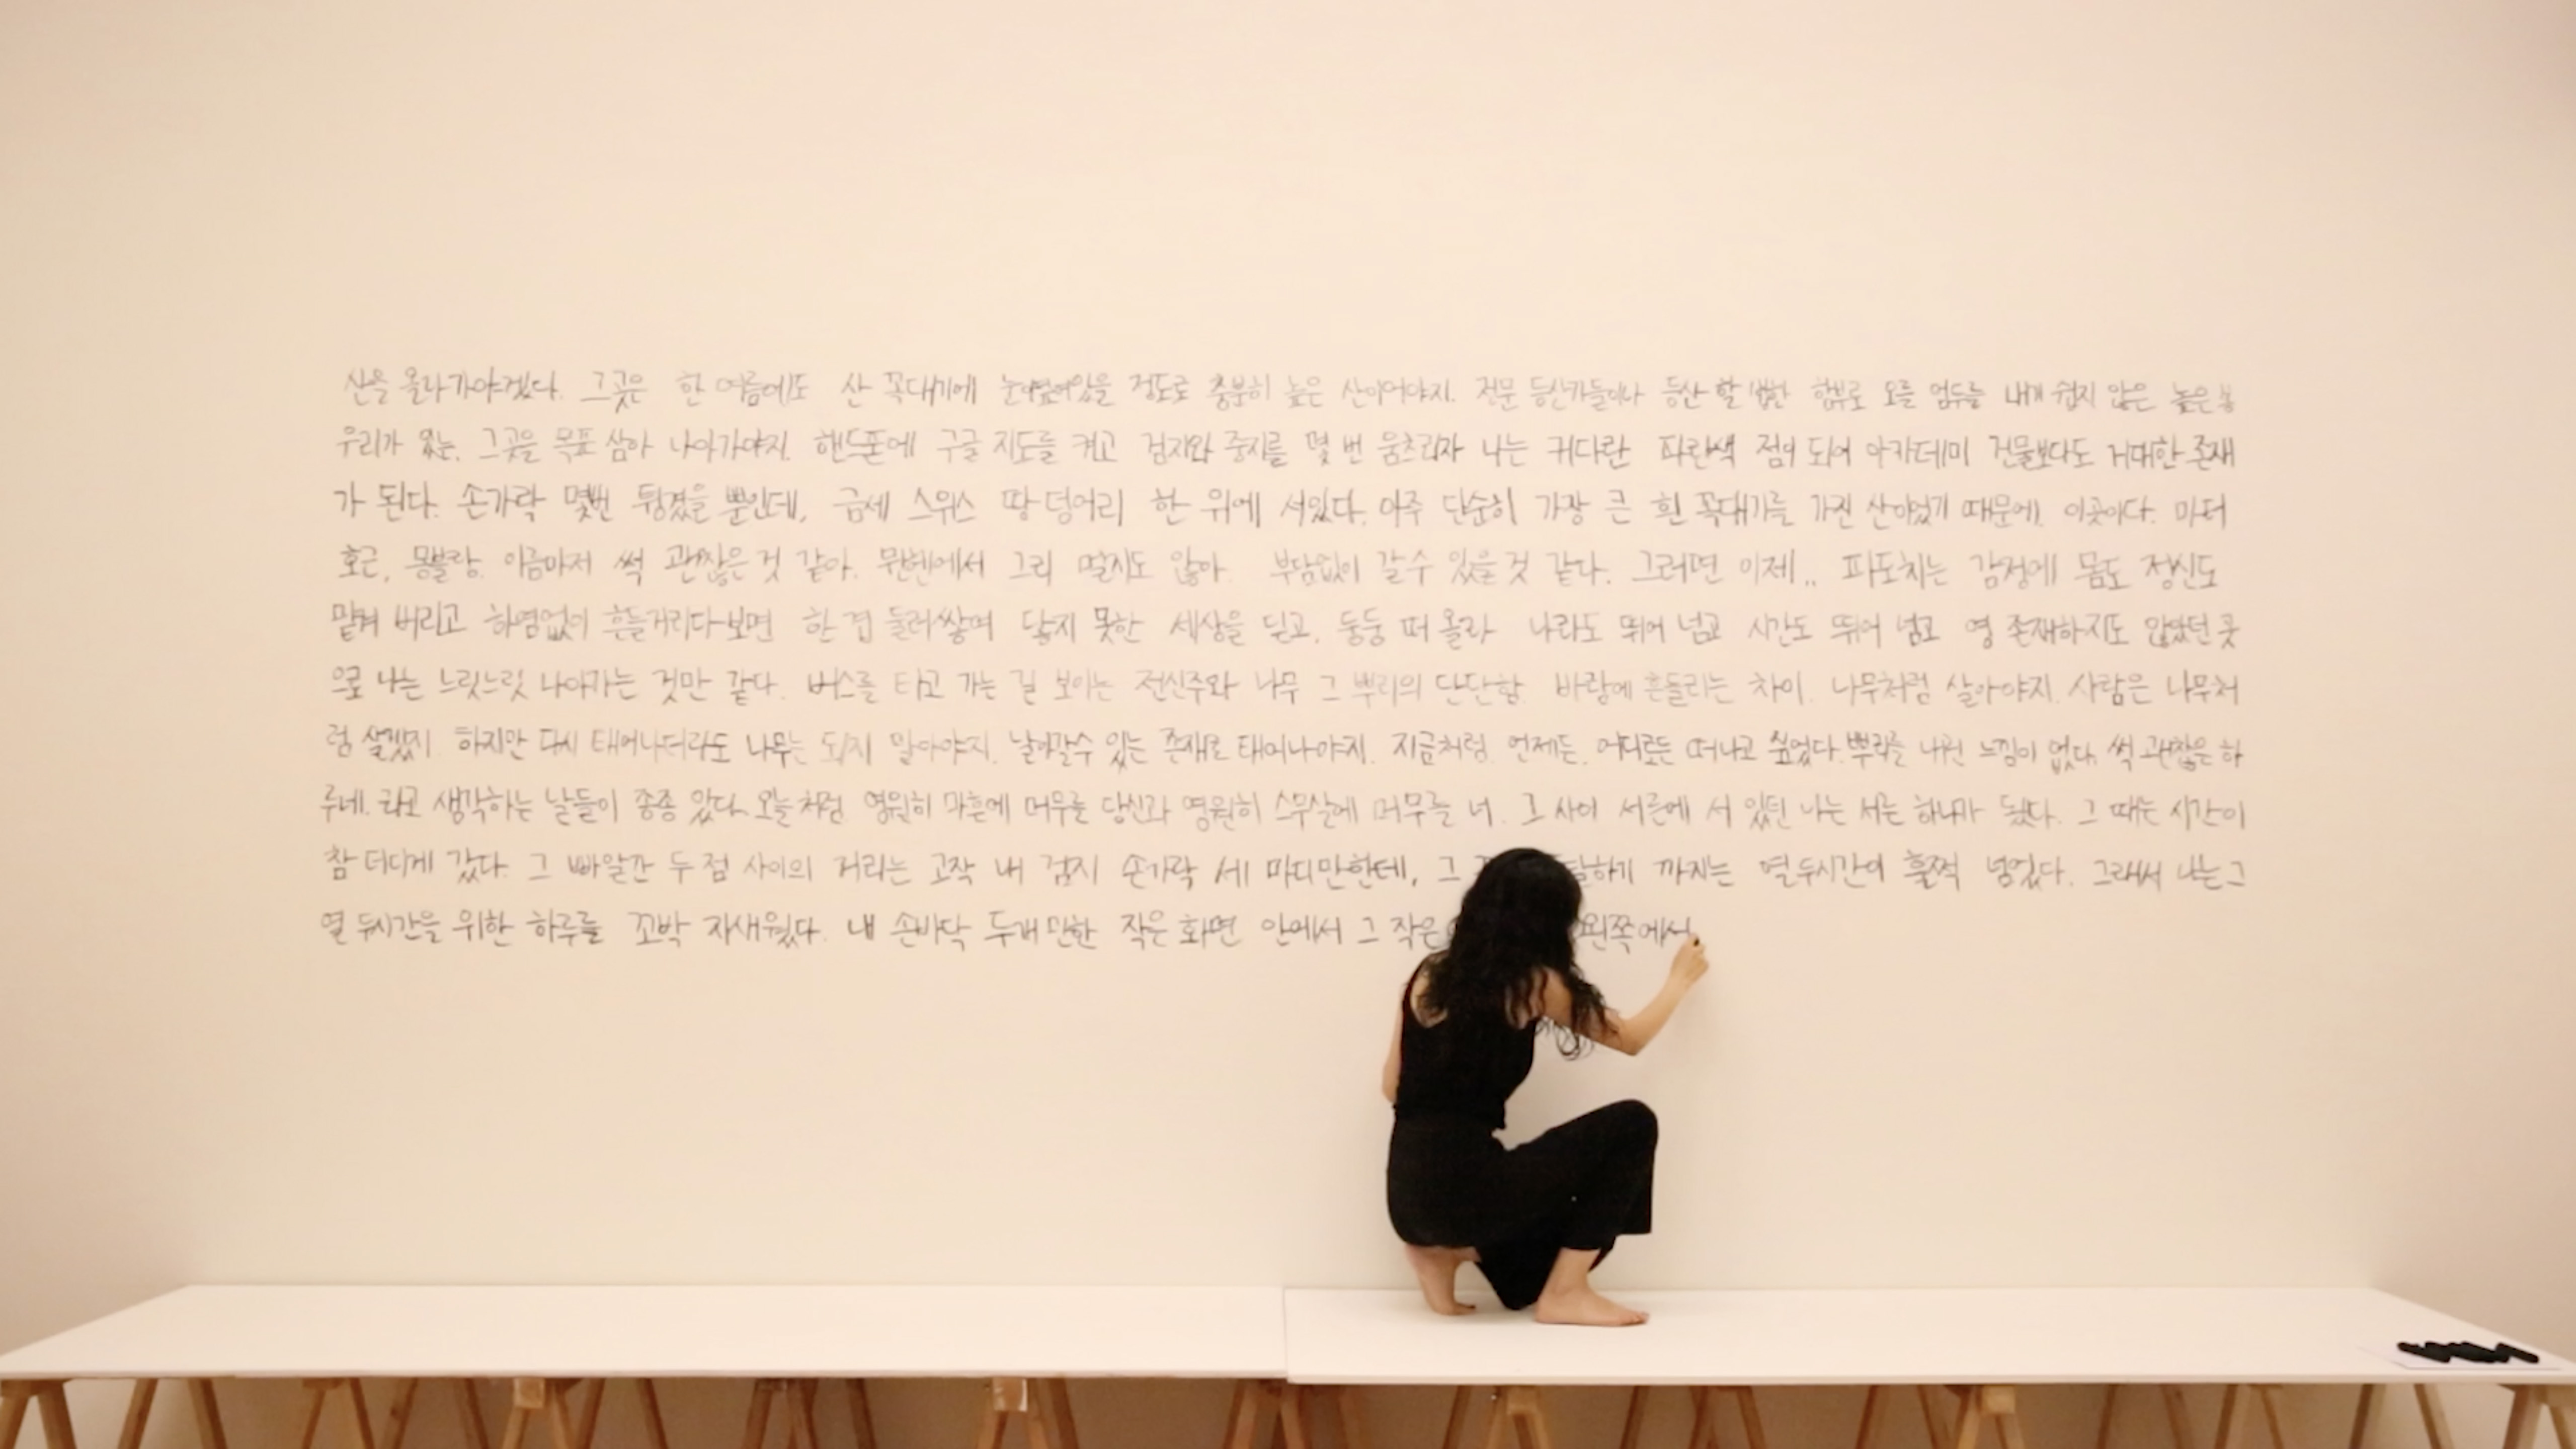 산을 올라가야겠다. 그곳은 한 여름에도 산 꼭대기에 눈이 정도로 충분히 높은 산이어야지. 전문 등산가들이나 등산 할 법한 함부로 오를 엄두를 내기 쉽지 않은 높은
우리가 있는, 그곳을 목표 삼아 나아가야지. 핸드폰에 구글 지도를 켜고 검지와 중지를 몇 번 움츠리자 나는 커다란 파란색 점이 되어 아카데미 건물보다도 거대한 존재
가 된다. 손가락 몇번 튕겼을 뿐인데, 금세 스위스 땅 덩어리 한 위에 서있다. 아주 단순히 가장 큰 흰 꼭대기를 가진 산이었기 때문에. 이곳이다. 마터
호른, 몽블랑. 이름마저 썩 괜찮은 것 같아. 뮌헨에서 그리 멀지도 않아. 부담없이 갈 수 있을 것 같다. 그러면 이제.. 파도치는 감정에 몸도 정신도
맡겨 버리고 하염없이 흔들거리다보면 한 겹 둘러쌓여 닿지 못한 세상을 딛고, 둥둥 떠 올라 나라도 뛰어 넘고 시간도 뛰어 넘고 영 존재하지도 않았던 곳
으로 나는 느릿느릿 나아가는 것만 같다. 버스를 타고 가는 길 보이는 전신주와 나무 그 뿌리의 단단함. 바람에 흔들리는 차이. 나무처럼 살아야지. 사람은 나무처
럼 살겠지. 하지만 다시 태어나더라도 나무는 되지 말아야지. 날아갈수 있는 존재로 태어나야지. 지금처럼. 언제든, 어디로든 떠나고 싶었다. 뿌리를 내린 느낌이 없다. 썩 괜찮은 하
루네. 라고 생각하는 날들이 종종 있다. 오늘처럼. 영원히 마흔에 머무를 당신과 영원히 스무살에 머무를 너. 그 사이 서른에 서 있던 나는 서른 하나가 됐다. 그 때는 시간이
참 더디게 갔다. 그 빠알간 두 점 사이의 거리는 고작 내 검지 손가락 세 마디만한데, 그 하기 까지는 열 두시간이 훌쩍 넘었다. 그래서 나는 그
열 두시간을 위한 하루를 꼬박 지새웠다. 내 손바닥 두개 만한 작은 화면 안에서 그 작은 왼쪽에서